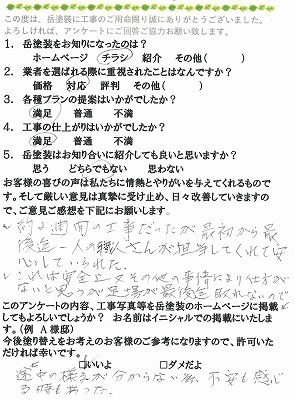 この度は、岳塗装に工事のご用命賜り誠にありがとうございました。
よろしければ、アンケートにご回答ご協力お願い致します。
1. 岳塗装をお知りになったのは?
ホームページ チラシ 紹介 その他( )
2. 業者を選ばれる際に重視されたことはなんですか?
価格 対応 評判 その他( )
3. 各種プランの提案はいかがでしたか?
満足 普通 不満
4. 工事の仕上がりはいかがでしたか?
満足 普通 不満
5. 岳塗装はお知り合いに紹介しても良いと思いますか?
思う どちらでもない 思わない
お客様の喜びの声は私たちに情熱とやりがいを与えてくれるものです。
そして厳しい意見は真摯に受け止め、日々改善していきますので、ご意見ご感想を下記にお願いします。
約2週間の工事だったが最初から最
後迄一人の職人さんが担当してくれて安
心していられた。
これは安全上とその他の事情により仕方が
ないと思うが足場が最後迄取れないので
このアンケートの内容、工事写真等を岳塗装のホームページに掲載
してもよろしいでしょうか? お名前はイニシャルでの掲載にいたします。(例 A様邸)
今後塗り替えをお考えのお客様のご参考になりますので、許可いただければ幸いです。
□いいよ □ダメだよ
途中の様子が分からない為、不安も感じ
る時もあった。